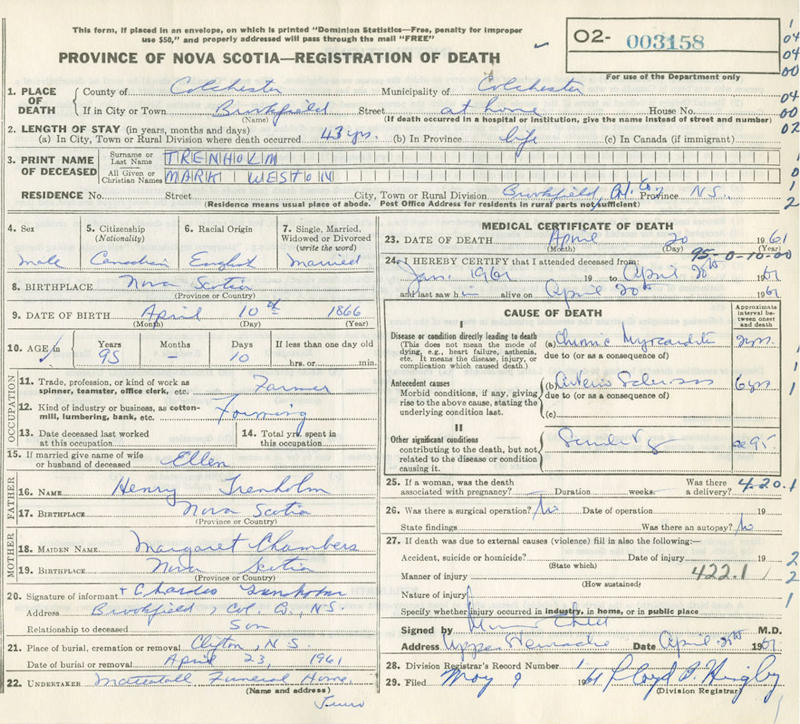 This form, if placed in an envelope, on which is printed "Dominion Statistics—Free, penalty for improper
use $50," and properly addressed will pass through the mail "FREE"
O2- 003158
For use of the Department only
PROVINCE OF NOVA SCOTIA—REGISTRATION OF DEATH
1
04
04
00
04
00
02
1. PLACE OF DEATH
County of Colchester Municipality of Colchester
If in City or Town Brookfield Street at home House No.
(Name) (If death occurred in a hospital or institution, give the name instead of street and number)
2. LENGTH OF STAY (in years, months and days)
(a) In City, Town or Rural Division where death occurred 43 yrs. (b) In Province life (c) In Canada (if immigrant)
3. PRINT NAME OF DECEASED
Surname or Last Name TRENHOLM
All Given or Christian Names MARK WESTON
RESIDENCE No. Street City, Town or Rural Division Brookfield, Col. Co. Province N.S.
(Residence means usual place of abode. Post Office Address for residents in rural parts not sufficient)
4. Sex
male
5. Citizenship
(Nationality)
Canadian
6. Racial Origin
English
7. Single, Married,
Widowed or Divorced
(write the word)
Married
8. BIRTHPLACE Nova Scotia
(Province or Country)
9. DATE OF BIRTH April 10th 1866
(Month) (Day) (Year)
10. AGE
Years Months Days If less than one day old
95 - 10 hrs. or min.
OCCUPATION
11. Trade, profession, or kind of work as
spinner, teamster, office clerk, etc. Farmer
12. Kind of industry or business, as cotton-
mill, lumbering, bank, etc. Farming
13. Date deceased last worked
at this occupation
14. Total yrs. spent in
this occupation
15. If married give name of wife
or husband of deceased Ellen
FATHER
16. NAME Henry Trenholm
17. BIRTHPLACE Nova Scotia
(Province or Country)
MOTHER
18. MAIDEN NAME Margaret Chambers
19. BIRTHPLACE Nova Scotia
(Province or Country)
20. Signature of informant + Charles Trenholm
Address Brookfield, Col. Co., N.S.
Relationship to deceased Son
21. Place of burial, cremation or removal Clifton, N.S.
Date of burial or removal April 23, 1961
22. UNDERTAKER Mattatall Funeral Home,
(Name and address)
Truro
MEDICAL CERTIFICATE OF DEATH
23. DATE OF DEATH April 20 1961
(Month) (Day) (Year)
95-0-10-00
24. I HEREBY CERTIFY that I attended deceased from:
Jan. 1961 19 to April 20th 1961
and last saw h im alive on April 20th 1961
CAUSE OF DEATH
Approximate
interval between onset
and death
I
Disease or condition directly leading to death
(This does not mean the mode of
dying, e.g., heart failure, asthenia,
etc. It means the disease, injury, or
complication which caused death.)
(a) Chronic Myocarditis
due to (or as a consequence of)
Antecedent causes
Morbid conditions, if any, giving
rise to the above cause, stating the
underlying condition last.
(b) Arterio Sclerosis 6 yrs
due to (or as a consequence of)
(c)
II
Other significant conditions
contributing to the death, but not
related to the disease or condition
causing it.
Senility 95
25. If a woman, was the death
associated with pregnancy? Duration weeks. Was there a delivery?
420.1
26. Was there a surgical operation? No Date of operation 19
State findings Was there an autopsy? No
27. If death was due to external causes (violence) fill in also the following:—
Accident, suicide or homicide? Date of injury 19
(State which)
Manner of injury 422.1
(How sustained)
Nature of injury
Specify whether injury occurred in industry, in home, or in public place
Signed by M.D.
Address Upper Date April 1961
28. Division Registrar's Record Number
29. Filed May 9 1961 Lloyd Higby
(Division Registrar)